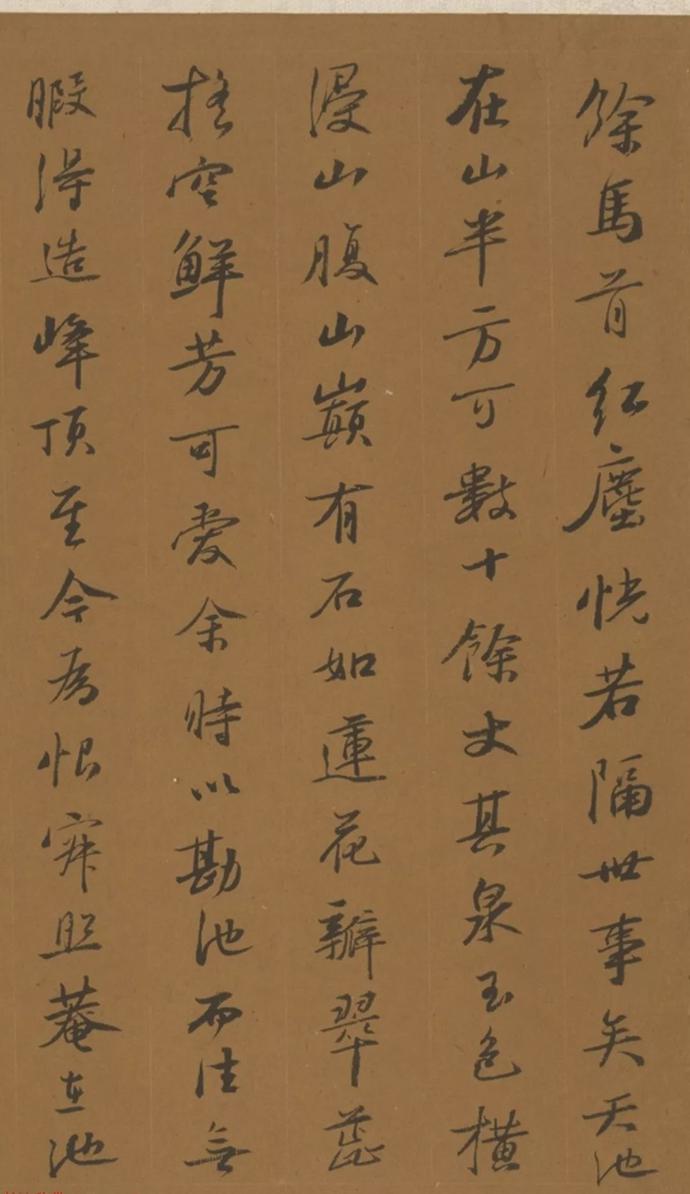 餘馬首紅塵恍若隔世事矣天池
在山半方可數十餘丈其泉玉色橫
浸山腹山巔有石如蓮花瓣翠蕊
搖空鮮芳可愛余時以勘池而往無
暇得造峰頂至今為恨寂照菴在池